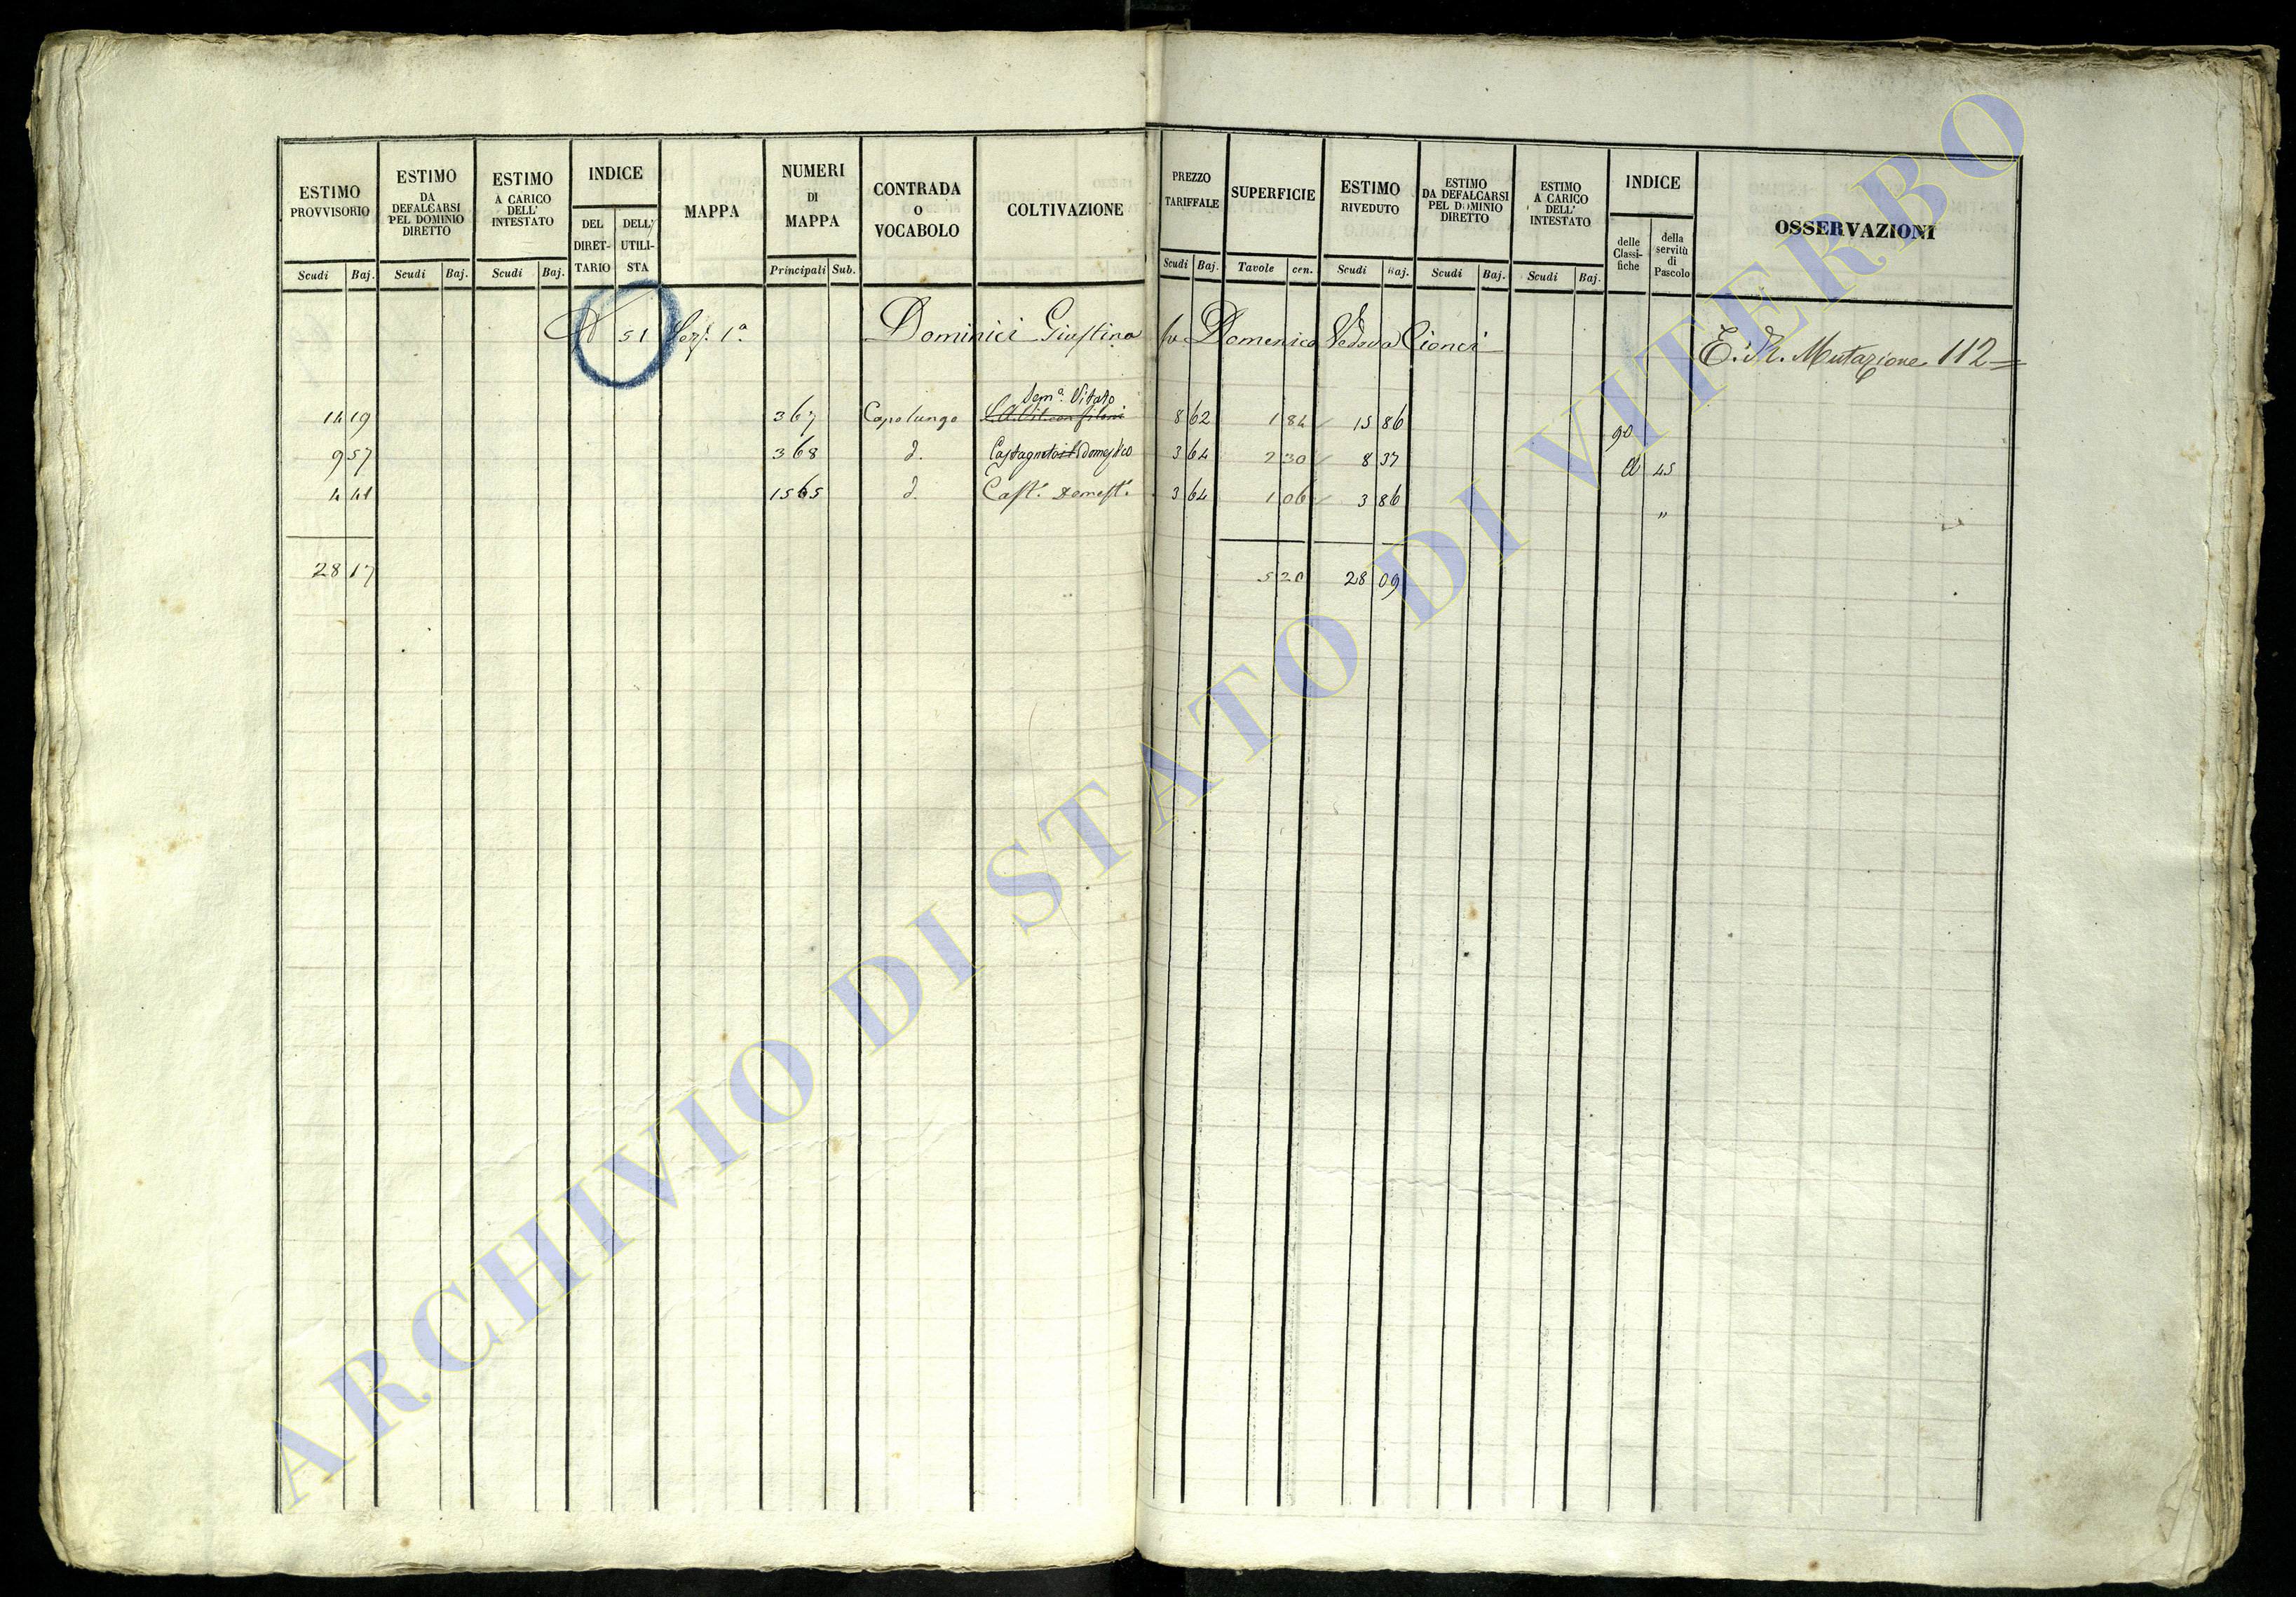 ESTIMO PROVVISORIO
Scudi Baj.
ESTIMO DA DEFALCARSI PEL DOMINIO DIRETTO
Scudi Baj.
ESTIMO A CARICO DELL' INTESTATO
Scudi Baj.
INDICE
DEL DIRET-TARIO
DELL' UTILI-STA
MAPPA
NUMERI DI MAPPA
Principali Sub.
CONTRADA O VOCABOLO
COLTIVAZIONE
PREZZO TARIFFALE
Scudi Baj.
SUPERFICIE
Tavole cen.
ESTIMO RIVEDUTO
Scudi Baj.
ESTIMO DA DEFALCARSI PEL DOMINIO DIRETTO
Scudi Baj.
ESTIMO A CARICO DELL' INTESTATO
Scudi Baj.
INDICE
delle Classi-fiche
della servitù di Pascolo
OSSERVAZIONI
51 1ª Dominici Giustina fu Domenico Vedova Cionci
Mutazione 112
Semº. Vitato
14 19 367 Capolungo 8 62 1 84 15 86 90
9 57 368 d. Castagneto domestico 3 64 2 30 8 37 45
4 41 1565 d. Castº. Domestº. 3 64 1 06 3 86 "
28 17 5 20 28 09
ARCHIVIO DI STATO DI VITERBO